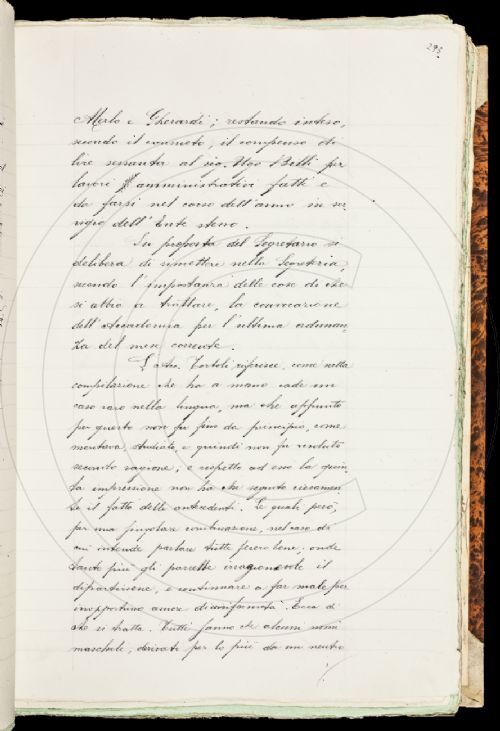 293
Merlo e Gherardi; restando inteso,
secondo il consueto, il compenso di
lire sessanta al sig. Ugo Belli per
lavori amministrativi fatti e
da farsi nel corso dell'anno in ser-
vigio dell'Ente stesso.
Su proposta del Segretario si
delibera di rimettere nella Segreteria,
secondo l'importanza delle cose di che
si abbia a trattare, la convocazione
dell'Accademia per l'ultima adunan-
za del mese corrente.
L'Acc. Tortoli riferisce, come nella
compilazione che ha a mano cade un
caso raro nella lingua, ma che appunto
per questo non fu fino da principio, come
meritava, studiato, e quindi non fu risoluto
secondo ragione; e rispetto ad esso la quin-
ta impressione non ha che seguito ciecamen-
te il fatto delle antecedenti. Le quali però,
per una singolare combinazione, nel caso di
cui intende parlare tutte fecero bene; onde
tanto più gli parrebbe irragionevole il
dipartirsene, e continuare a far male per
inopportuno amore di uniformità. Ecco di
che si tratta. Tutti sanno che alcuni nomi
maschili, derivati per lo più da un neutro